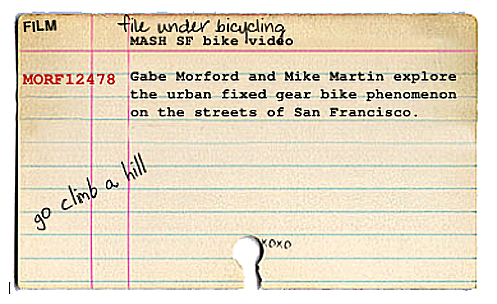 FILM
file under bicycling
MASH SF bike video
MORF12478
Gabe Morford and Mike Martin explore
the urban fixed gear bike phenomenon
on the streets of San Francisco.
go climb a hill
xoxo